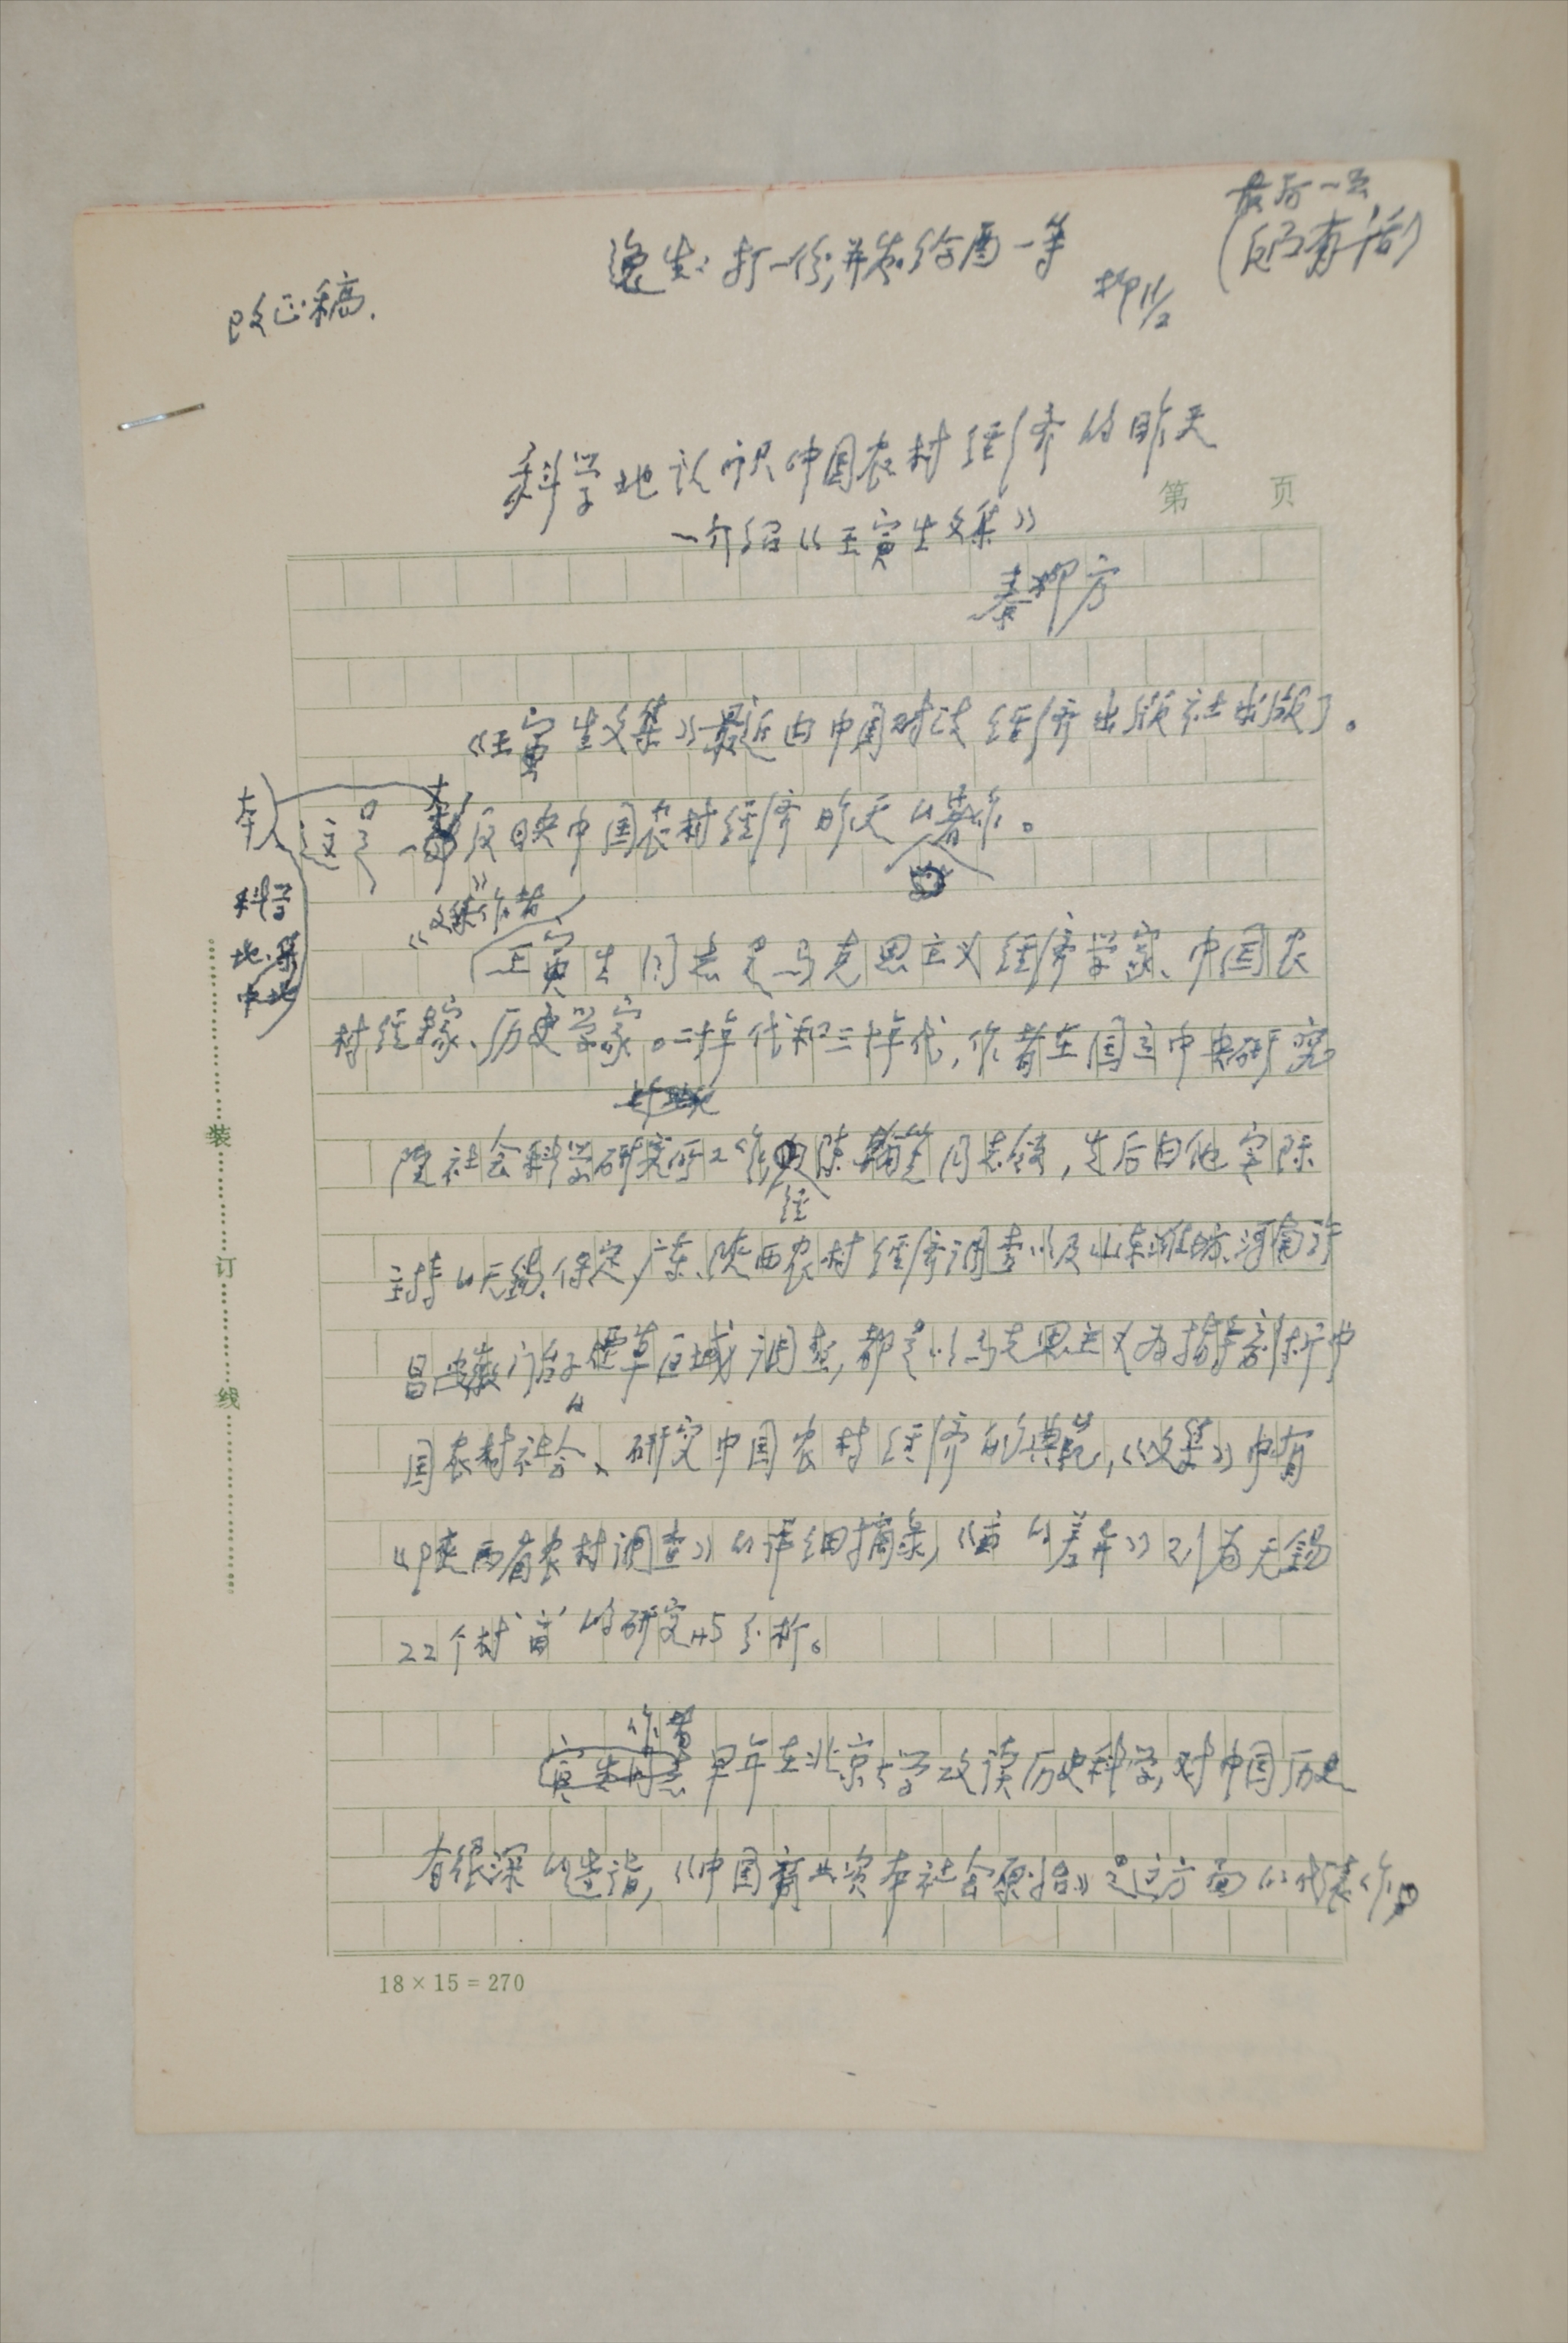 最后一页
(反面有话)
逸生：打一份，并发给酉一等
柳 11/2
改正稿.
科学地认识中国农村经济的昨天
第 页
一介绍《王寅生文集》
秦柳方
《王寅生文集》最近由中国财政经济出版社出版了。
本
这是一部反映中国农村经济昨天的著作。
科学
地、集
中地
《文集》作者
王寅生同志是马克思主义经济学家、中国农
村经济家、历史学家。二十年代和三十年代，作者在国立中央研究
院社会科学研究所工作陈翰笙同志领，先后由他实际
经
主持的无锡、保定、广东、陕西农村经济调查以及山东潍坊、河南许
昌安徽门台子烟草区域调查，都是以马克思主义为指导剖析中
的
国农村社会、研究中国农村经济的典范，《文集》中有
《陕西省农村调查》的详细摘录，《亩的差异》则为无锡
22个村“亩”的研究与分析。
作者
寅生同志早年在北京大学攻读历史科学，对中国历史
有很深的造诣，《中国商业资本社会原始》是这方面的代表作。
装
订
线
18×15=270